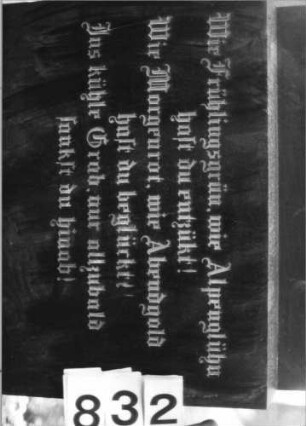 Wie Frühlingsgrün, wie Alpenglühn
hast du entzükt!
Wie Morgenrot, wie Abendgold
hast du beglückt!
Ins kühle Grab, nur allzubald
sankst du hinab!
832